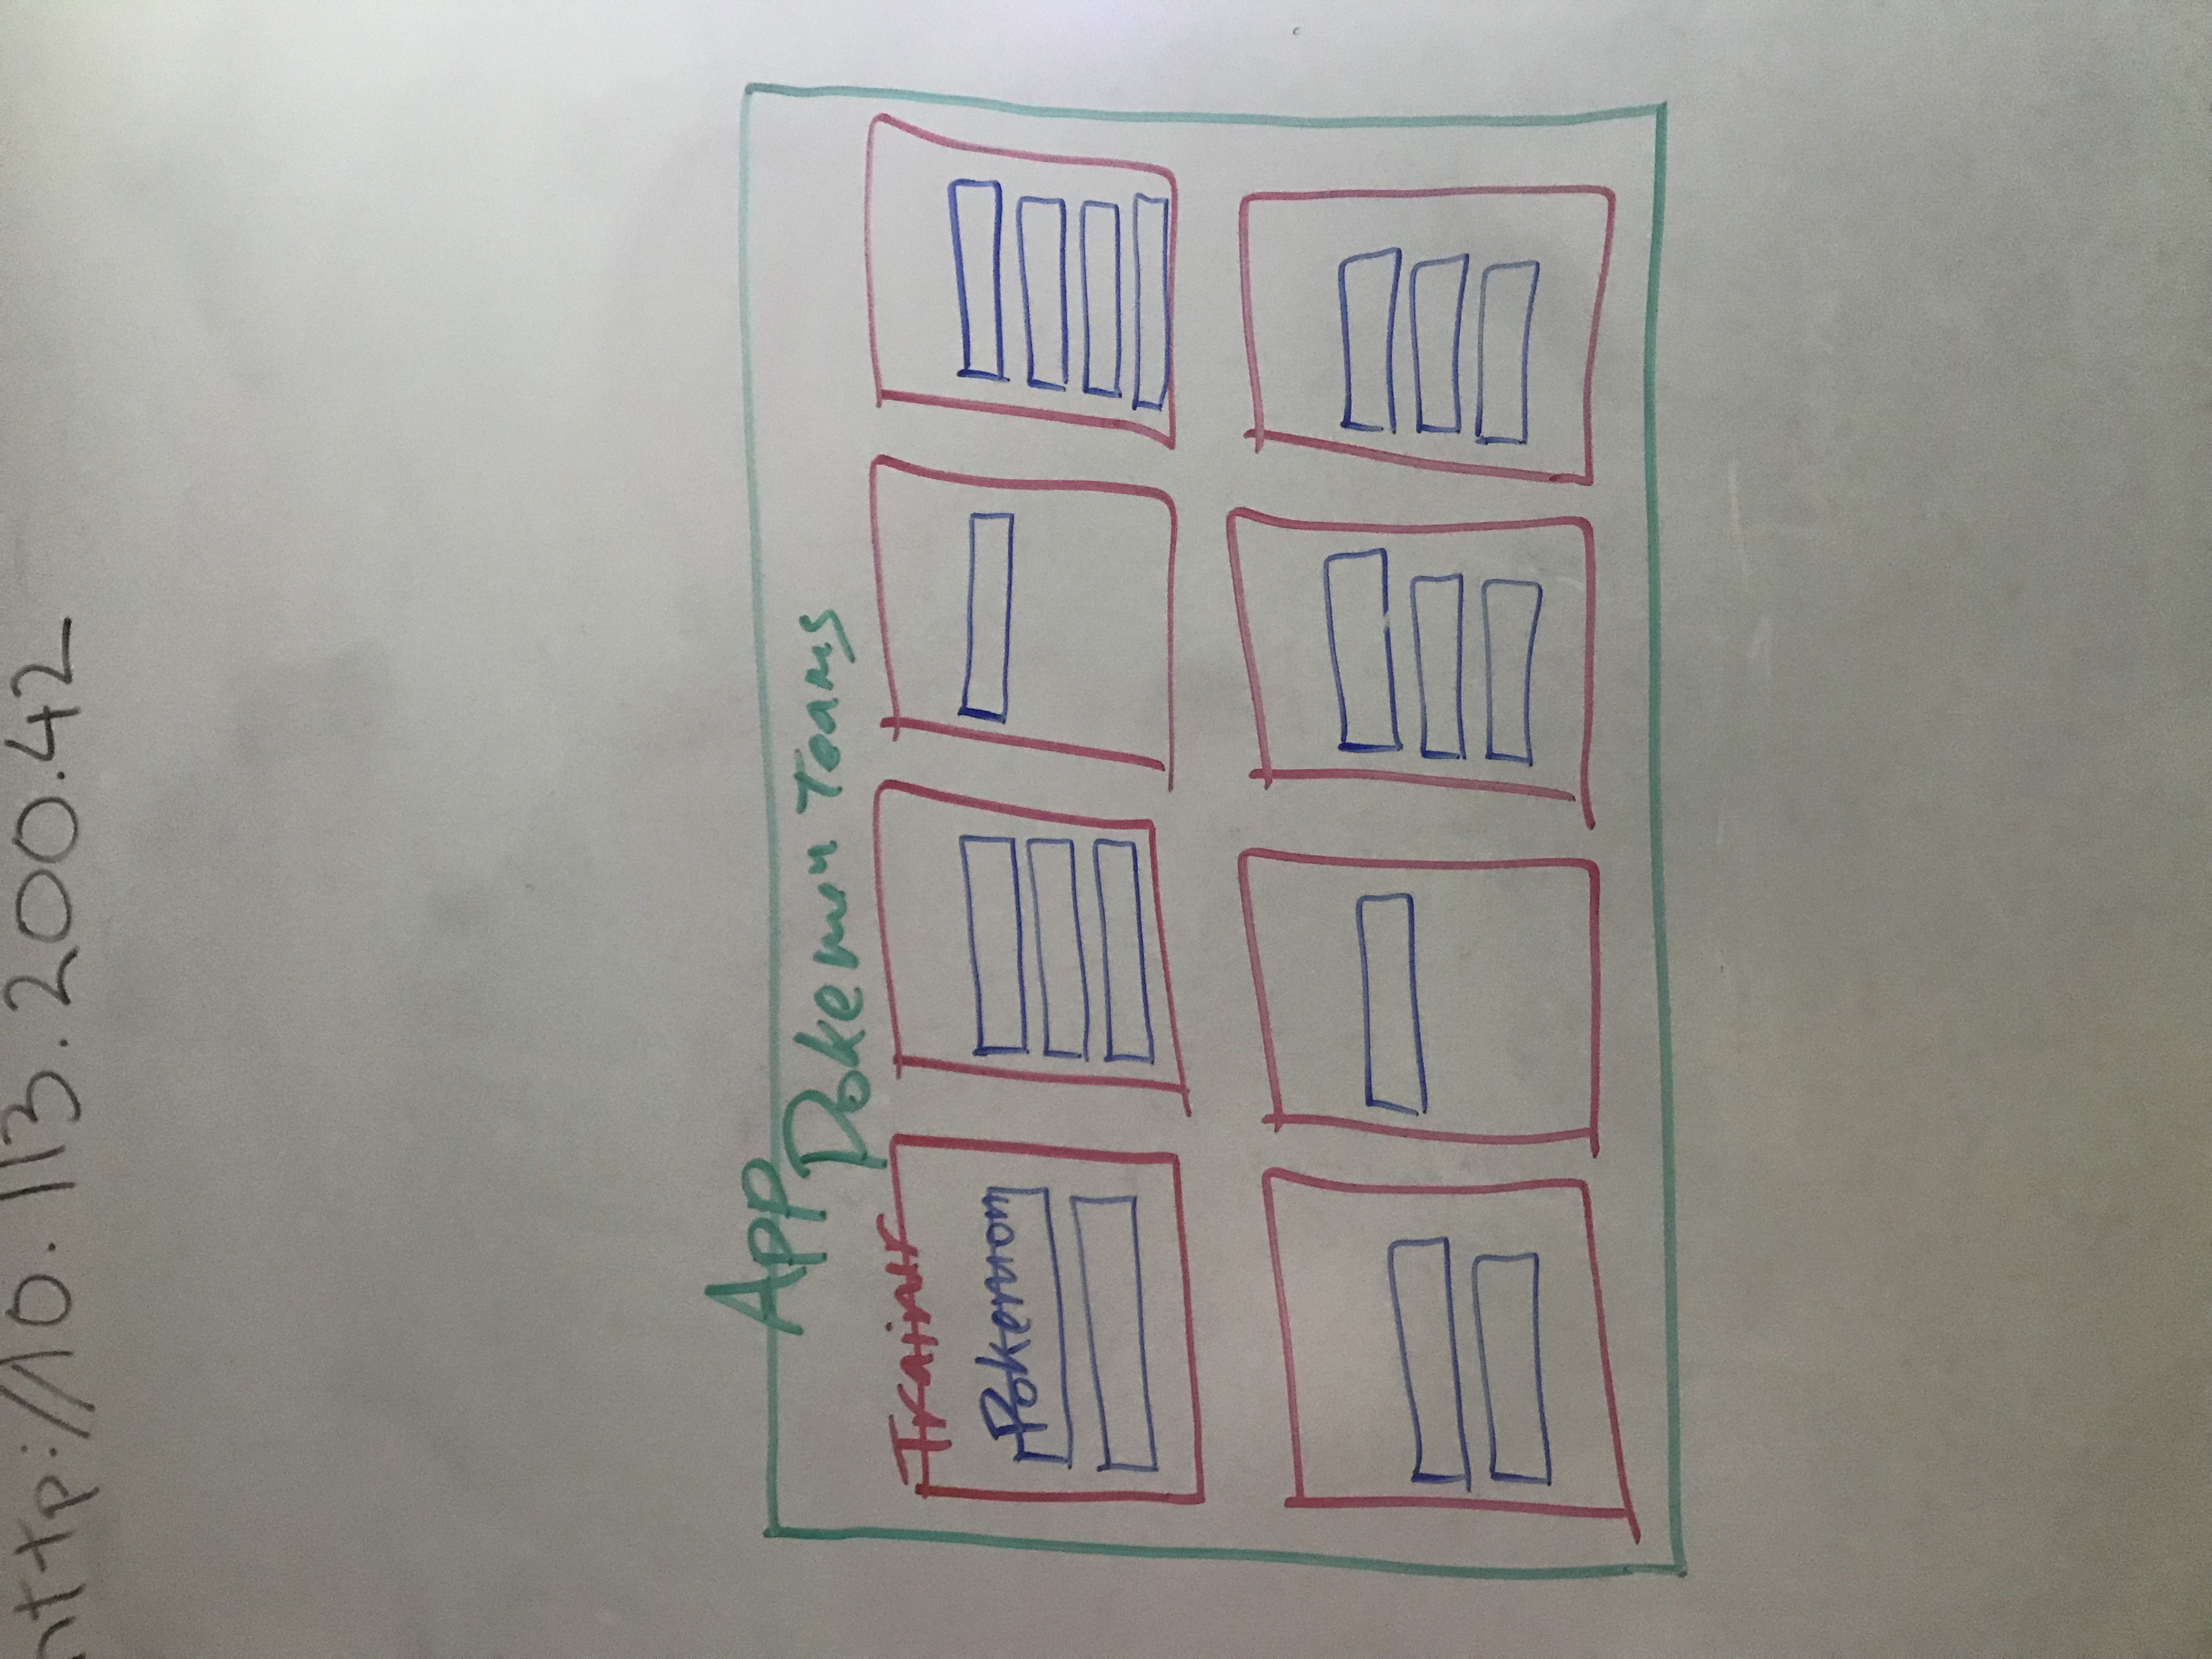 http://10.113.200.42
App
Pokemon Teams
Trainer
Pokemon